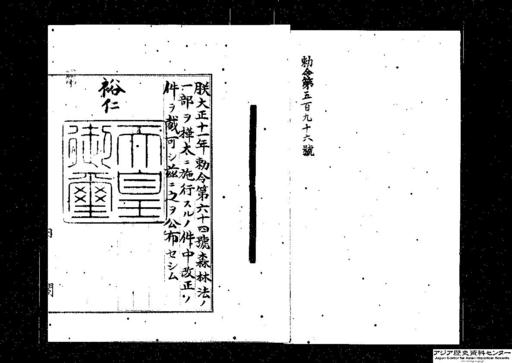 勅令第五百九十六號
朕大正十一年勅令第六十四號森林法ノ
一部ヲ樺太ニ施行スルノ件中改正ノ
件ヲ裁可シ茲ニ之ヲ公布セシム
裕仁
天皇
御璽
内閣
アジア歴史資料センター
Japan Center for Asian Historical Records